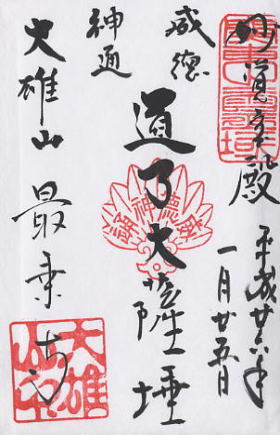 妙覚宝殿
平成廿六年
一月廿五日
威徳
神通
道了大薩埵
大雄山
最乗寺
大雄山印